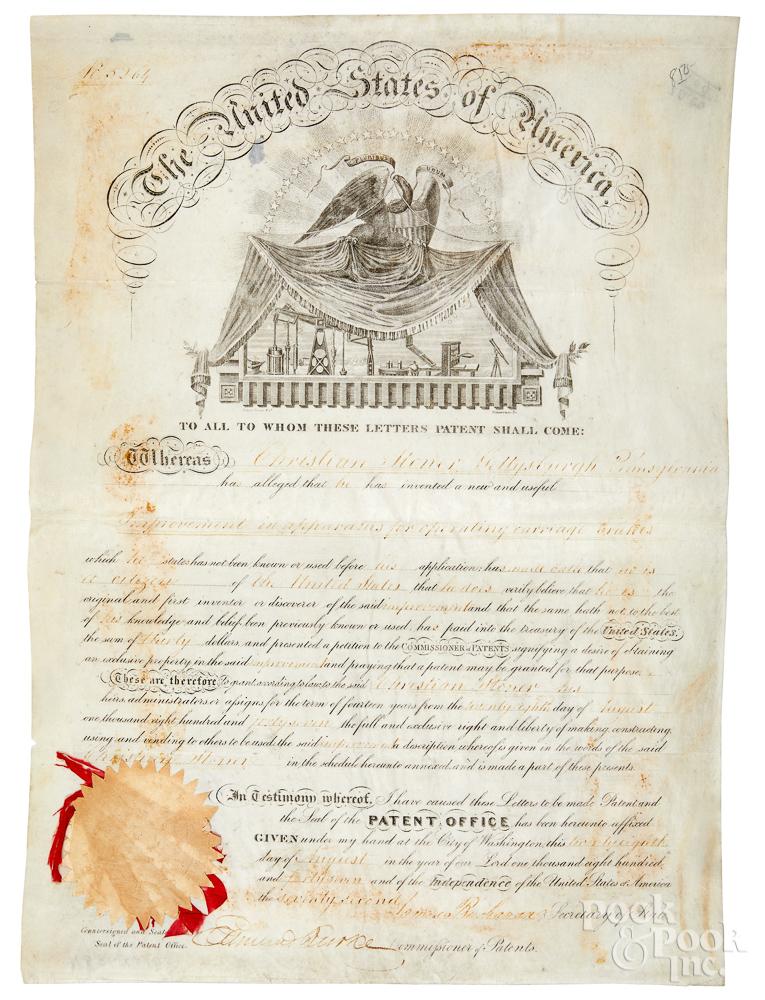 No 5264
The United States of America,
E PLURIBUS UNUM
TO ALL TO WHOM THESE LETTERS PATENT SHALL COME:
Whereas Christian Pennsylvania
has alleged that he has invented a new and useful
Improvement in apparatus for operating carriage brakes
which he states has not been known or used before his application; has made oath that he is
a citizen of the United States that he does verily believe that he is the
original and first inventor or discoverer of the said improvement and that the same hath not, to the best
of his knowledge and belief, been previously known or used, has paid into the treasury of the United States,
the sum of thirty dollars, and presented a petition to the COMMISSIONER of PATENTS signifying a desire of obtaining
an exclusive property in the said improvement and praying that a patent may be granted for that purpose.
These are therefore to grant according to law, to the said Christian his
heirs, administrators or assigns for the term of fourteen years from the twenty eighth day of August
one thousand eight hundred and fortyseven the full and exclusive right and liberty of making, constructing,
using, and vending to others to be used, the said improvement a description whereof is given in the words of the said
Christian in the schedule hereunto annexed, and is made a part of these presents.
In Testimony whereof, I have caused these Letters to be made Patent and
the Seal of the PATENT OFFICE has been hereunto affixed
GIVEN under my hand at the City of Washington, this twenty eighth
day of August in the year of our Lord one thousand eight hundred
and fortyseven and of the Independence of the United States of America
the seventy second
James Buchanan Secretary of State
Countersigned and Sealed
Seal of the Patent Office.
Edmund Burke Commissioner of Patents.
POOK & POOK Inc.